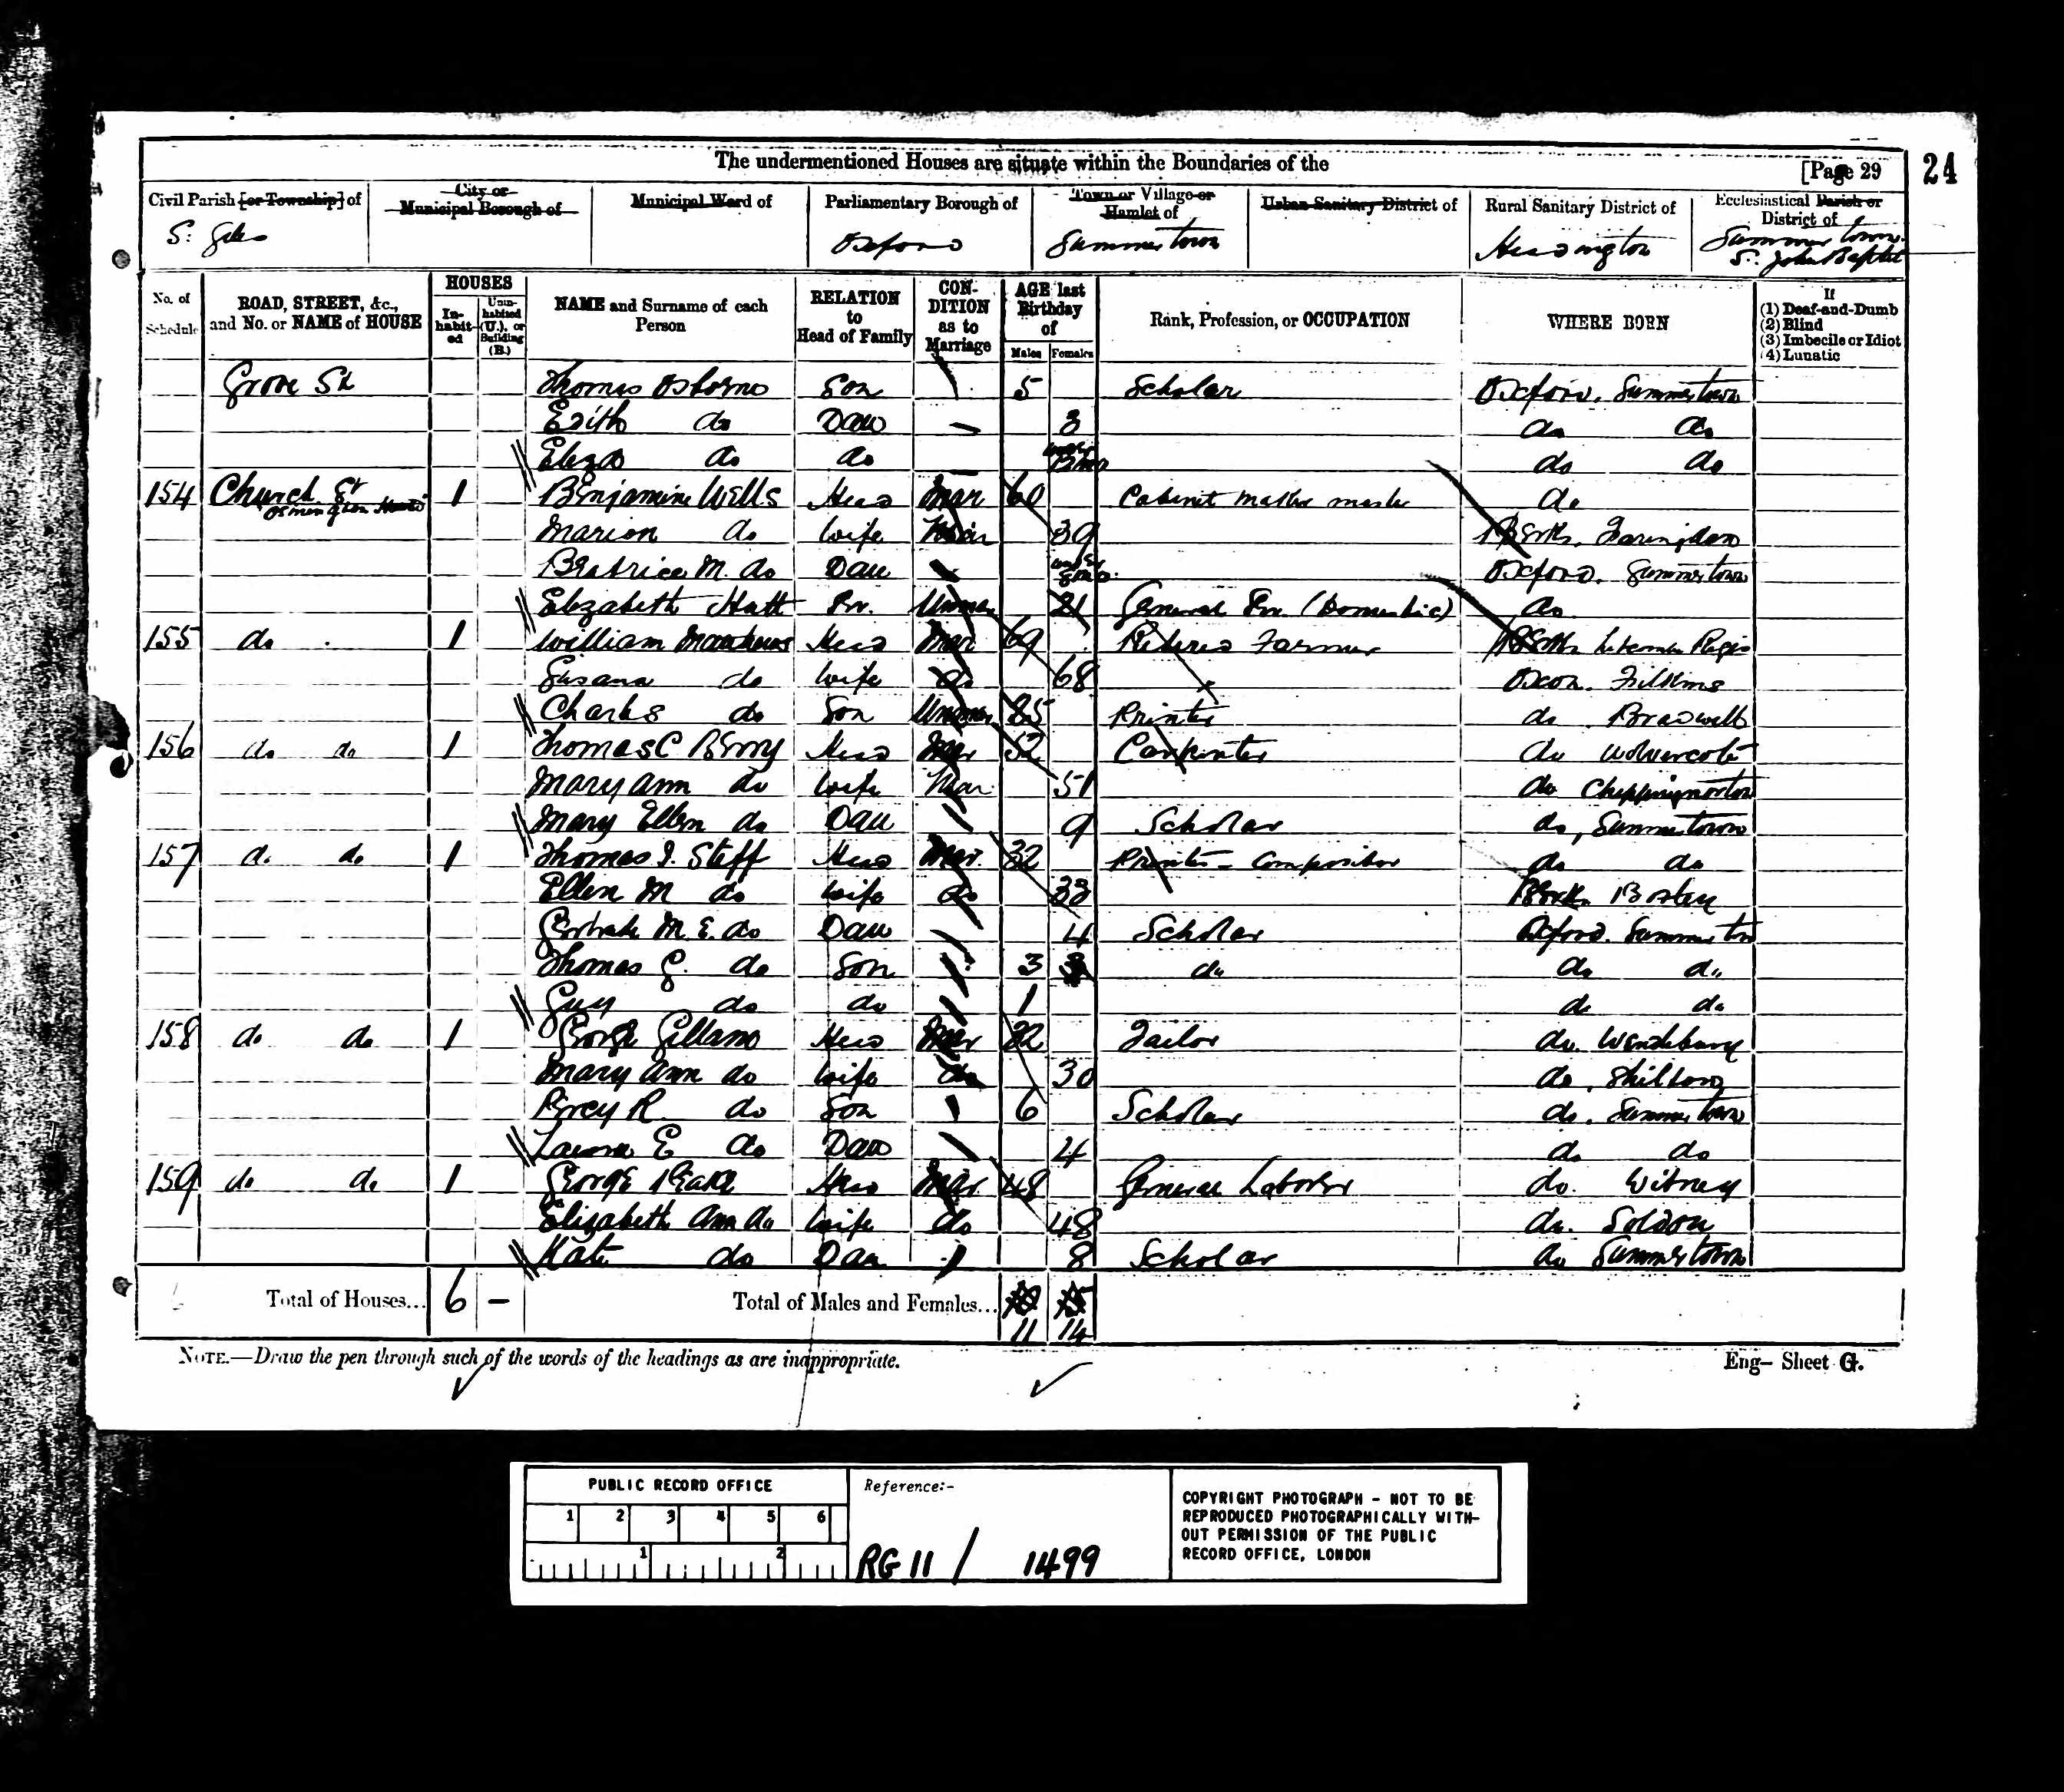 The undermentioned Houses are situate within the Boundaries of the
[Page 29
24
Civil Parish [or Township] of
City or Municipal Borough of
Municipal Ward of
Parliamentary Borough of
Town or Village or Hamlet of
Urban Sanitary District of
Rural Sanitary District of
Ecclesiastical Parish or District of
S: Giles
Oxford
Summertown
Headington
Summertown S: John Baptist
No. of Schedule
ROAD, STREET, &c., and No. or NAME of HOUSE
HOUSES
In-habit-ed
Unin-habited (U.), or Building (B.)
NAME and Surname of each Person
RELATION to Head of Family
CON-DITION as to Marriage
AGE last Birthday of
Males
Females
Rank, Profession, or OCCUPATION
WHERE BORN
If
(1) Deaf-and-Dumb
(2) Blind
(3) Imbecile or Idiot
(4) Lunatic
Grove St Thomas Osborne Son 5 Scholar Oxford. Summertown
Edith do Daw 3 do do
Eliza do do do do
154 Church St 1 Benjamine Wells Head Mar 60 Cabinet maker master do
Marion do Wife Mar 39 Berks. Faringdon
Beatrice M. do Dau Oxford. Summertown
Elizabeth Hatt Sr. Unmar 21 General Sr. (Domestic) do
155 do 1 William Matthews Head Mar 69 Retired Farmer Berks
Susana do Wife do 68 Oxon. Filkins
Charles do Son Unmar 25 Printer do Bradwell
156 do do 1 Thomas C Berry Head Mar 52 Carpenter do Wolvercote
Mary Ann do Wife Mar 51 do Chippingnorton
Mary Ellen do Dau 9 Scholar do, Summertown
157 do do 1 Thomas J. Steff Head Mar. 32 Printer - Compositor do do
Ellen M do Wife do 33 Berks
Gertrude M. E. do Dau 4 Scholar Oxford. Summertown
Thomas G. do Son 3 do do do
Guy do do 1 do do
158 do do 1 George Gillams Head Mar 32 Tailor do. Wendlebury
Mary Ann do Wife do 30 do. Shilton
Percy R. do Son 6 Scholar do. Summertown
Laura E do Daw 4 do do
159 do do 1 George Head Mar 48 General Laborer do. Witney
Elizabeth Ann do Wife do 48 do. Soldon
Kate do Dau 8 Scholar do Summertown
Total of Houses... 6 –
Total of Males and Females...
11 14
NOTE.—Draw the pen through such of the words of the headings as are inappropriate.
Eng– Sheet G.
PUBLIC RECORD OFFICE
1 2 3 4 5 6
1 2
Reference:-
RG 11 / 1499
COPYRIGHT PHOTOGRAPH - NOT TO BE
REPRODUCED PHOTOGRAPHICALLY WITH-
OUT PERMISSION OF THE PUBLIC
RECORD OFFICE, LONDON